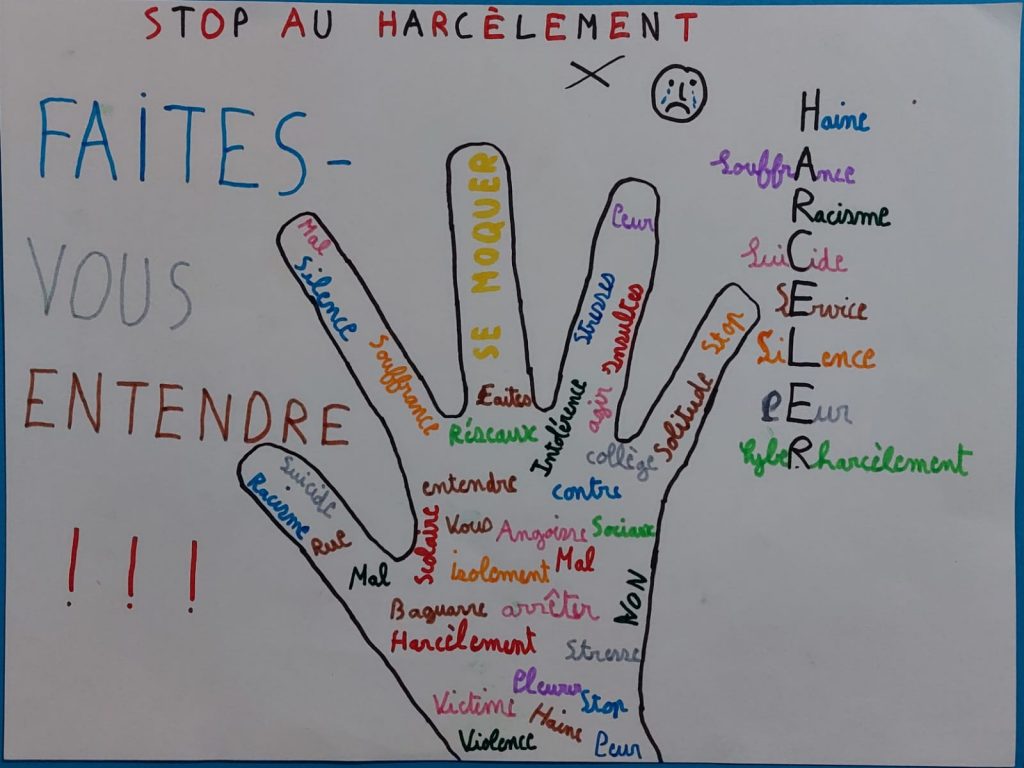 STOP AU HARCÈLEMENT
FAITES-
VOUS
ENTENDRE
!!!
Haine
SouffrAnce
Racisme
SuiCide
SErvice
SiLence
PEur
CybeRharcèlement
Mal
Silence
Souffrance
SE MOQUER
Peur
Stresses
Insultes
Stop
Solitude
Faites
Réseaux
Intolérence
agir
collège
entendre
contre
Suicide
Racisme
Rue
Mal
Scolaire
Vous
Angoisse
Sociaux
isolement
Mal
NON
Baguarre
arrêter
Harcèlement
Stresse
Pleurer
Victime
Haine
Stop
Violence
Peur